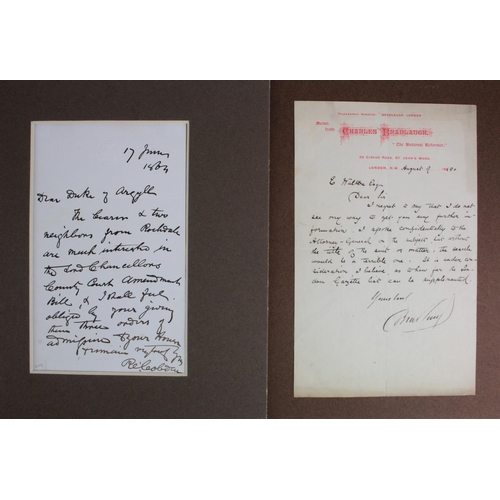 17 June
1864
Dear Duke of Argyll
The bearer & two
neighbors from Rochdale
are much interested in
the Lord Chancellors
County Court Amendment
Bill, & I shall feel
obliged by your giving
them three orders of
admission to your House
I remain
R Cobden
CHARLES BRADLAUGH,
"The National Reformer."
20 Circus Road, St. John's Wood,
LONDON, N.W. August 9 1880
Esqr
Dear Sir
I regret to say that I do not
see any way to get you any further in-
formation. I spoke confidentially to the
Attorney-General on the subject but without
the title of the suit or matter, the search
would be a terrible one. It is under con-
sideration I believe as to how far the Lon-
don Gazette list can be supplemented.
Yours truly